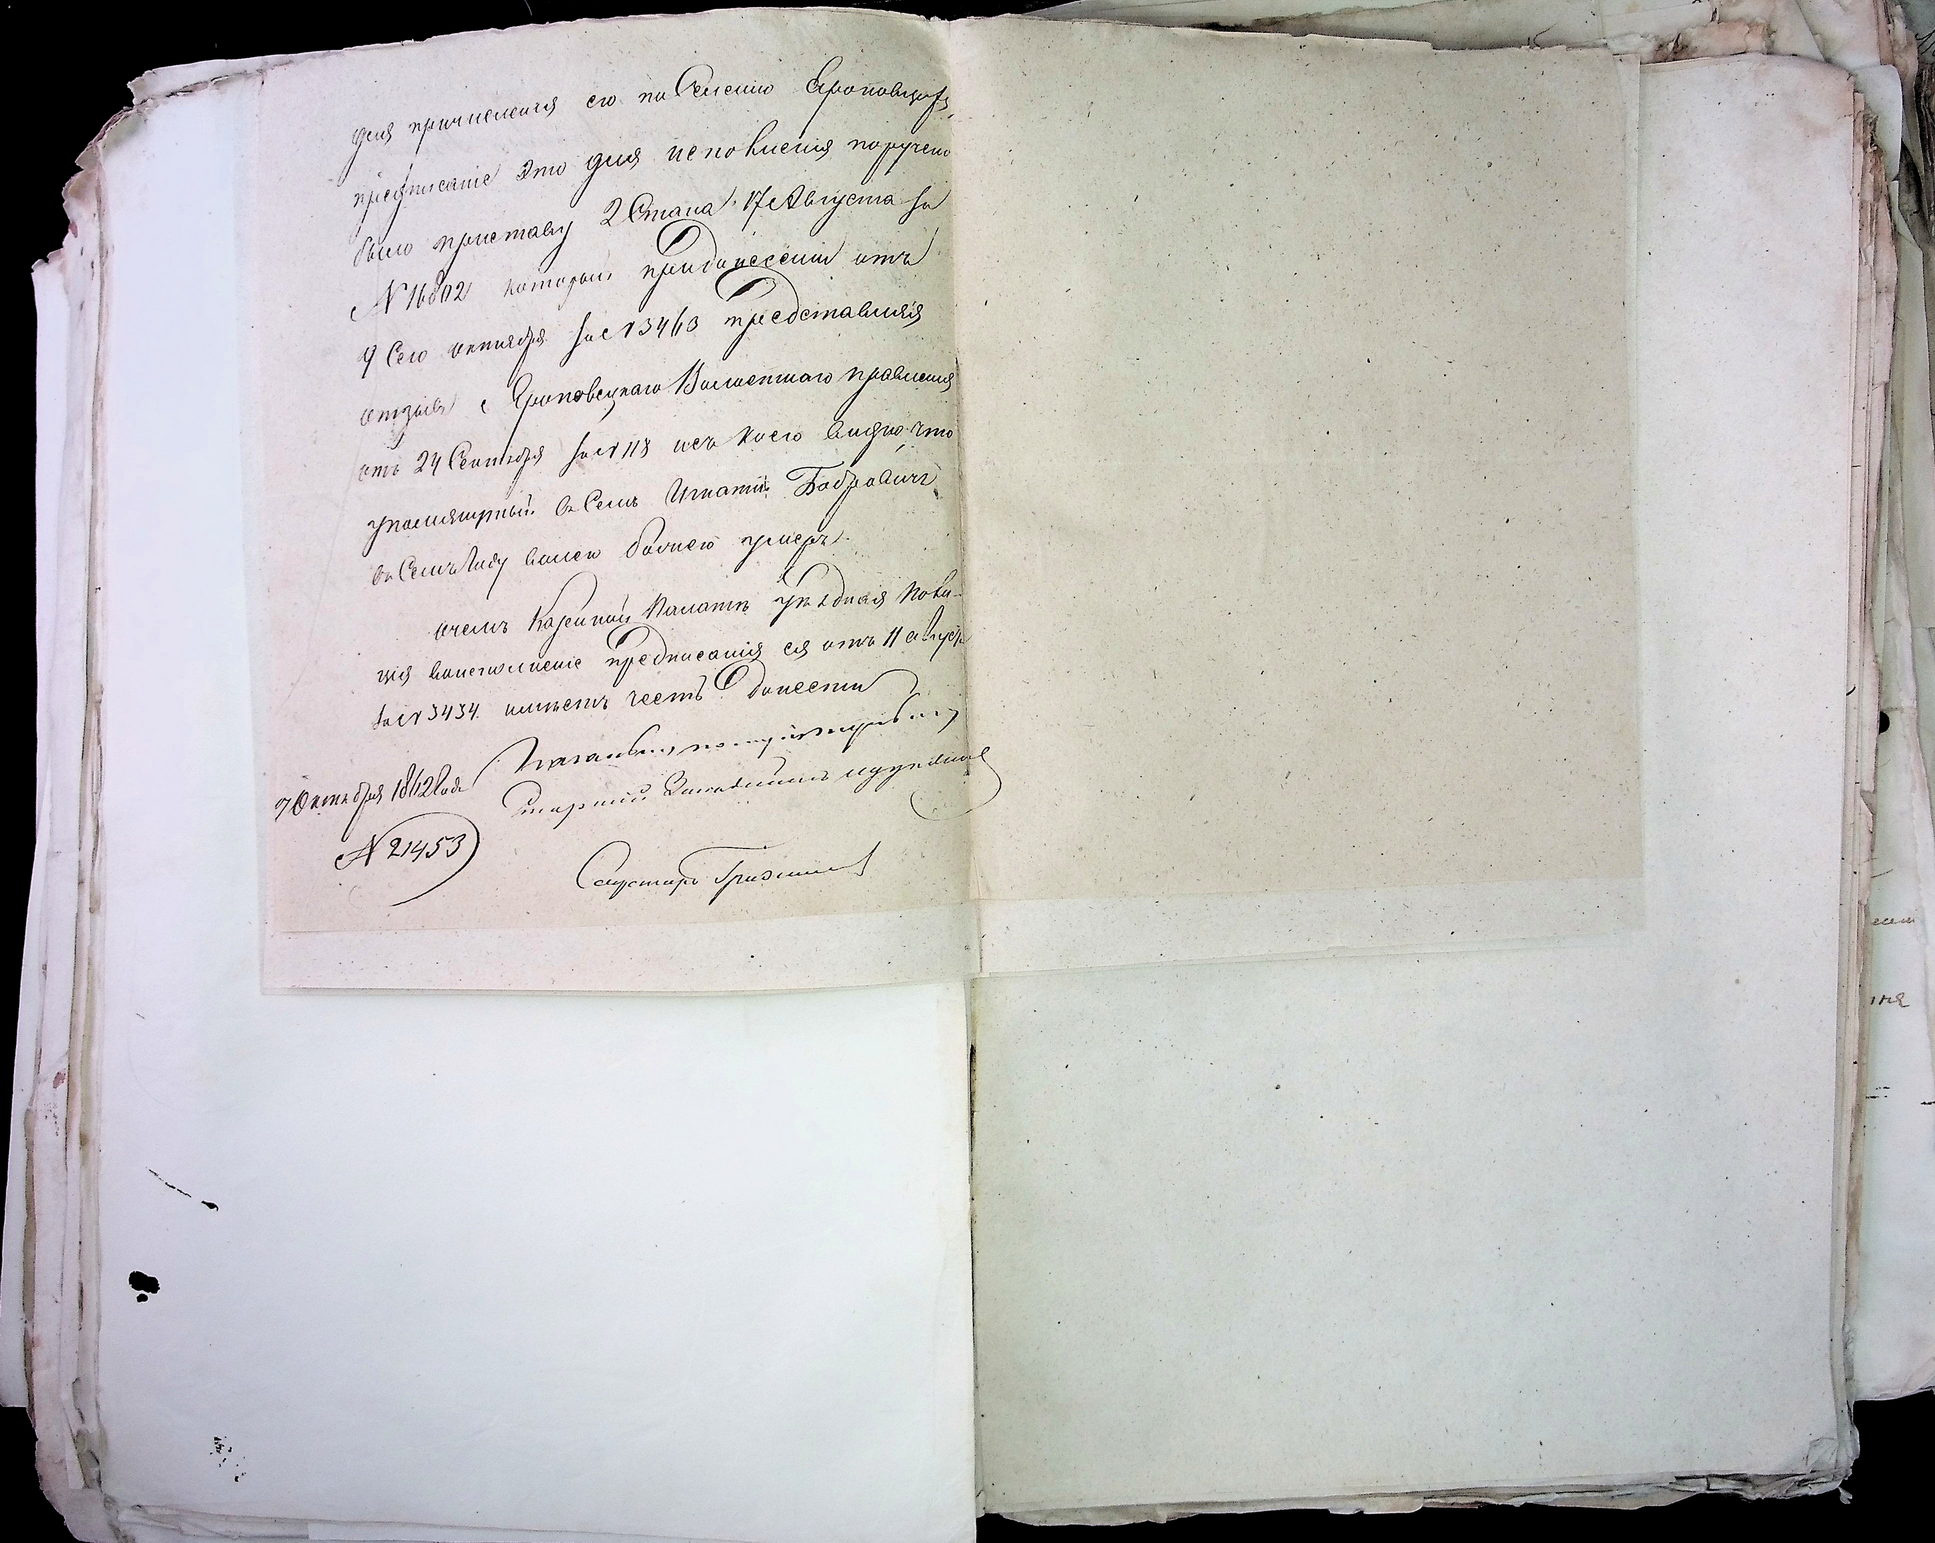 для причисленія его по Селенію
предписаніе это для исполненія поручено
было приставу 2 Стана 17 Августа за
N 16802 который при донесеніи отъ
9 Сего октября за N 3463 представляя
отзывъ Яроповецкаго Волостнаго правленія
отъ 24 Сентября за N 118 изъ коего видно что
упомянутый въ Семъ Игнатій Бобровичъ
въ Семъ Году
очемъ Казенной Палатѣ уѣздная Поли-
ція воисполненіе предписанія ея отъ 11 августа
за N 3434 имѣетъ честь донести
7 Октября 1862 Года
N 21453
Старшій
Секретарь